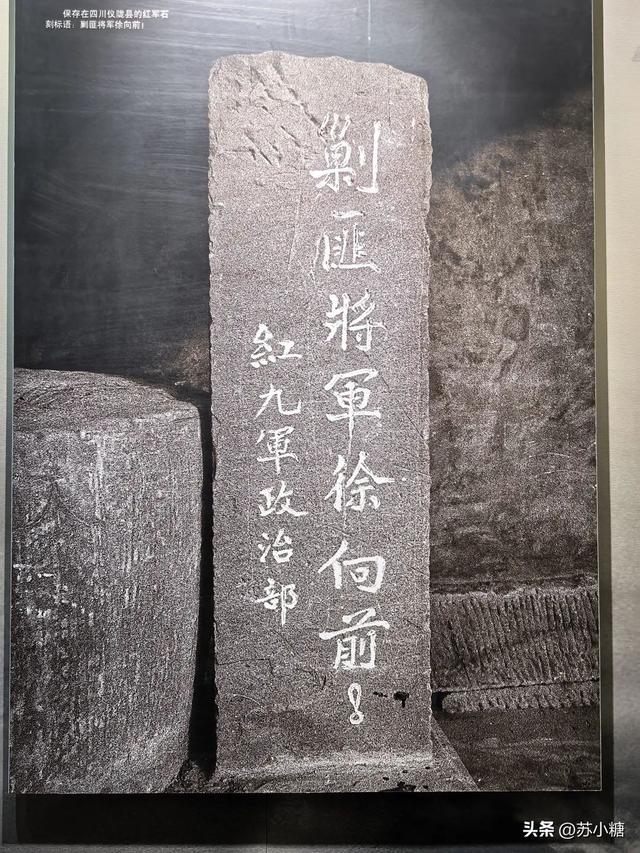 保存在四川仪陇县的红军石
刻标语：剿匪将军徐向前！
剿匪將軍徐向前！
紅九軍政治部
头条 @苏小糖